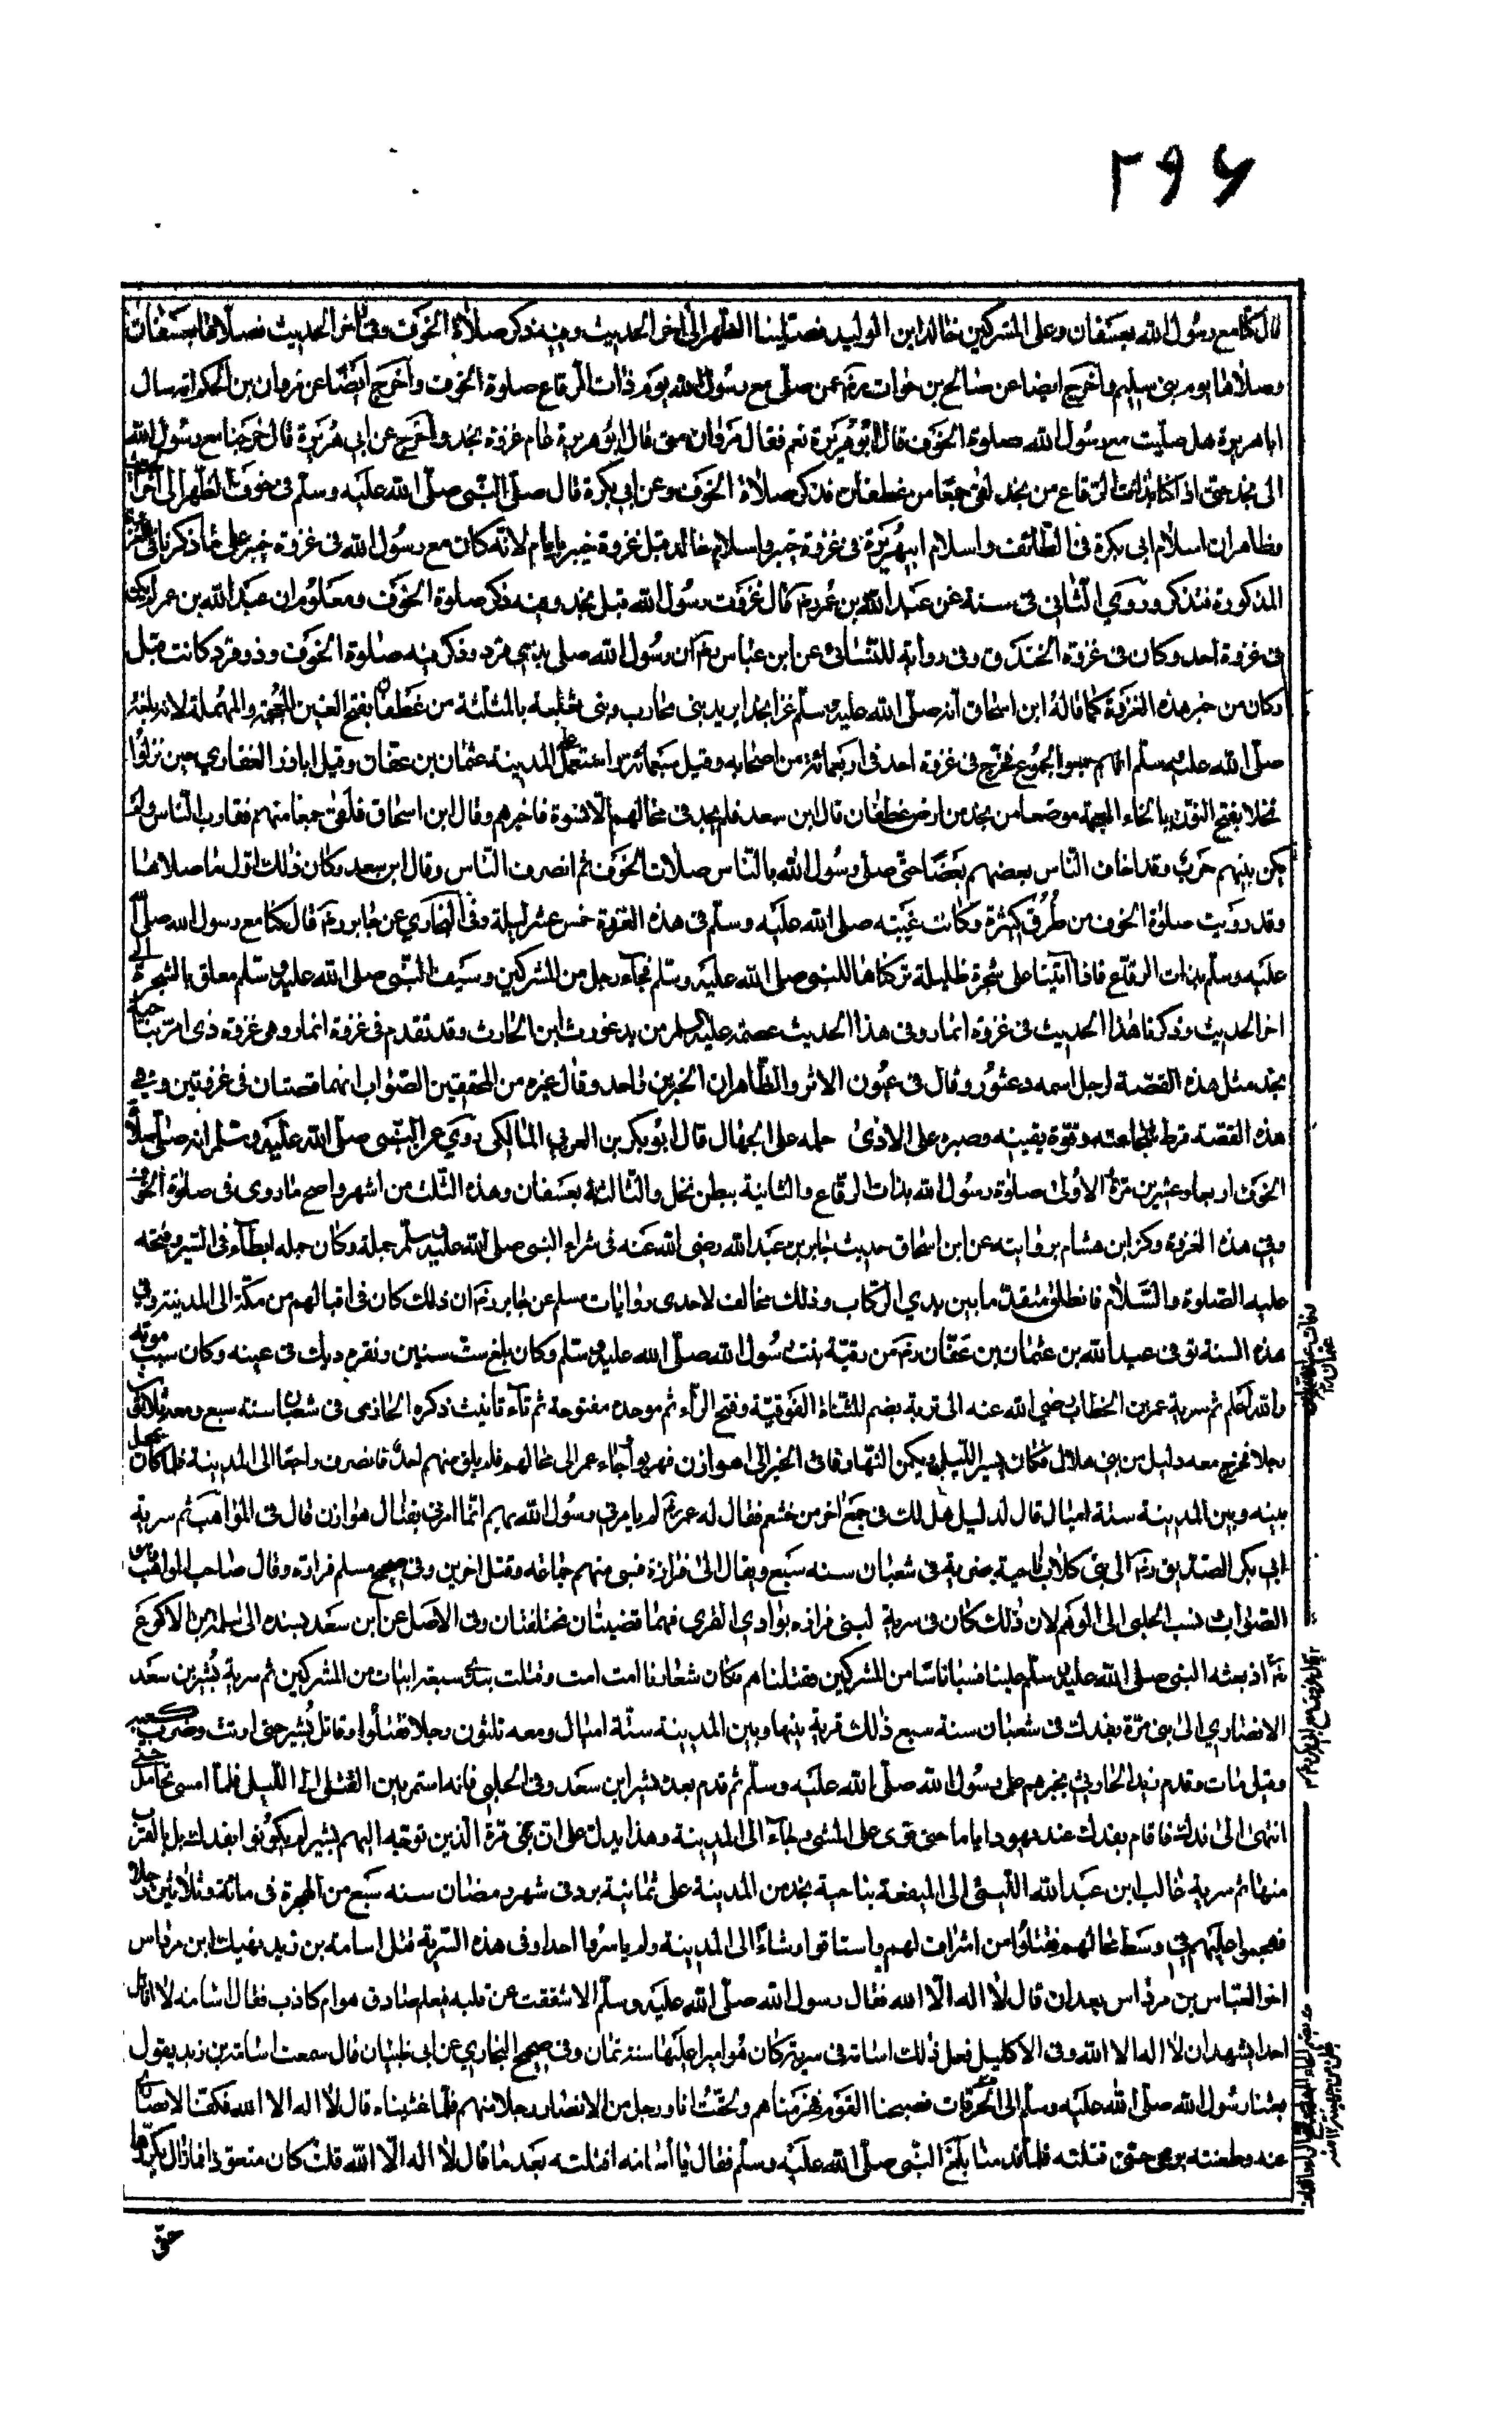 ٢٩٦
قال كنا مع رسول الله بعسفان وعلى المشركين خالد ابن الوليد فصلى بنا الظهر الى اخر الحديث وفيه ذكر صلاة الخوف وفى اخر الحديث فصلاها بعسفان
وصلاها يوم بنى سليم واخرج ايضا عن صالح بن خوات عمن صلى مع رسول الله يوم ذات الرقاع صلوة الخوف واخرج ايضا عن مروان بن الحكم انه سال
ابا هريرة هل صليت مع رسول الله صلوة الخوف قال ابو هريرة نعم فقال مروان متى قال ابو هريرة عام غزوة نجد واخرج عن ابى هريرة قال خرجنا مع رسول الله
الى نجد حتى اذا كنا بذات الرقاع من نجد لقى جمعا من غطفان فذكر صلاة الخوف وعن ابى بكرة قال صلى النبى صلى الله عليه وسلم فى خوف الظهر الى اخر
وظاهر ان اسلام ابى بكرة فى الطائف واسلام ابى هريرة فى غزوة خيبر واسلام خالد قبل غزوة خيبر بايام لانه كان مع رسول الله فى غزوة خيبر على ما ذكرنا فى
المذكورة فتذكر وروى النسائى فى سننه عن عبد الله بن عمر قال غزوت رسول الله قبل نجد وفيه ذكر صلوة الخوف ومعلوم ان عبد الله بن عمر لم يكن
فى غزوة احد وكان فى غزوة الخندق وفى رواية للنسائى عن ابن عباس ان رسول الله صلى بذى قرد وذكر فيه صلوة الخوف وذو قرد كانت قبل
وكان من خبر هذه الغزوة كما قاله ابن اسحاق انه صلى الله عليه وسلم غزا نجدا يريد بنى محارب وبنى ثعلبة بالمثلثة من غطفان بفتح الغين المعجمة والمهملة لانه بلغه
صلى الله عليه وسلم انهم جمعوا الجموع فخرج فى غزوة احد فى اربعمائة من اصحابه وقيل سبعمائة واستعمل على المدينة عثمان بن عفان وقيل ابا ذر الغفاري حين نزلوا
نخلا بفتح النون بالخاء المعجمة موضعا من نجد من ارض غطفان قال ابن سعد فلم يجد فى محالهم الا نسوة فاخذهم وقال ابن اسحاق فلقى جمعا منهم فتقارب الناس ولم
يكن بينهم حرب وقد اخاف الناس بعضهم بعضا حتى صلى رسول الله بالناس صلات الخوف ثم انصرف الناس وقال ابن سعد وكان ذلك اول ما صلاها
وقد رويت صلوة الخوف من طرق كثيرة وكانت غيبته صلى الله عليه وسلم فى هذه الغزوة خمس عشر ليلة وفى البخاري عن جابر قال كنا مع رسول الله صلى
عليه وسلم بذات الرقاع فاذا اتينا على شجرة ظليلة تركناها للنبى صلى الله عليه وسلم فجاء رجل من المشركين وسيف النبى صلى الله عليه وسلم معلق بالشجرة الى
اخر الحديث وذكرنا هذا الحديث فى غزوة انمار وفى هذا الحديث عصمته عليه السلم من يد غورث ابن الحارث وقد تقدم فى غزوة انمار وهى غزوة ذى امر بناحية
نجد مثل هذه القصة لرجل اسمه دعثور وقال فى عيون الاثر والظاهر ان الخبرين واحد وقال غيره من المحققين الصواب انهما قصتان فى غزوتين وفى
هذه القصة فرط شجاعته وقوة يقينه وصبره على الاذى حلمه على الجهال قال ابو بكر بن العربى المالكى روى عن النبى صلى الله عليه وسلم انه صلى صلاة
الخوف اربعا وعشرين مرة الاولى صلوة رسول الله بذات الرقاع والثانية ببطن نخل والثالثة بعسفان وهذه الثلث من اشهر واصح ما روى فى صلوة الخوف
وفى هذه الغزوة ذكر ابن هشام بروايته عن ابن اسحاق حديث جابر بن عبد الله رضى الله عنه فى شراء النبى صلى الله عليه وسلم جمله وكان جمله ابطا فى السير
عليه الصلوة والسلام فانطلق متقدما بين يدي الركاب وذلك مخالف لاحدى روايات مسلم عن جابر ان ذلك كان فى اقبالهم من مكة الى المدينة وفى
هذه السنة توفى عبد الله بن عثمان بن عفان من رقية بنت رسول الله صلى الله عليه وسلم وكان بلغ ست سنين ونقره ديك فى عينه وكان سبب موته
والله اعلم ثم سرية عمر بن الخطاب رضي الله عنه الى تربة بضم المثناة الفوقية وفتح الراء ثم موحدة مفتوحة ثم تاء تانيث ذكره الحازمى فى شعبان سنة سبع ومعه ثلاثون
رجلا فخرج معه دليل من بنى هلال فكان يسير الليل ويكمن النهار فاتى الخبر الى هوازن فهربوا وجاء عمر الى محالهم فلم يلق منهم احدا فانصرف راجعا الى المدينة فلما كان
بينه وبين المدينة ستة اميال قال له دليل هل لك فى جمع اخر من خثعم فقال له عمر لم يامرنى رسول الله بهم انما امرنى بقتال هوازن قال فى المواهب ثم سرية
ابى بكر الصديق الى بنى كلاب بناحية ضرية فى شعبان سنه سبع ويقال الى فزارة فسبى منهم جماعة وقتل اخرين وفى صحيح مسلم فزاره وقال صاحب المواهب وهو
الصواب نسب الحلبى الى الوهم لان ذلك كان فى سرية لبنى فزاره بوادي القرى فهما قضيتان مختلفتان وفى الاصل عن ابن سعد بسنده الى سلمة بن الاكوع
اذ بعثه النبى صلى الله عليه وسلم علينا فسبا ناسا من المشركين فقتلناهم فكان شعارنا امت امت وقتلت بيدى سبعة ابيات من المشركين ثم سرية بشير بن سعد
الانصاري الى بنى مرة بفدك فى شعبان سنة سبع ذلك قرية بينها وبين المدينة ستة اميال ومعه ثلثون رجلا فقتلوا وقاتل بشير حتى ارتث وضرب كعبه
وقيل مات وقدم زيد الحارثى بخبرهم على رسول الله صلى الله عليه وسلم ثم قدم بعده بشير ابن سعد وفى الحلبى فانه استمر بين القتلى الى الليل فلما امسى تحامل حتى
انتهى الى فدك فاقام بفدك عند يهود اياما حتى قوى على المشى وجاء الى المدينة وهذا يدل على ان بنى مرة الذين توجه اليهم بشير لم يكونوا بفدك بل بالقرب
منها ثم سرية غالب ابن عبد الله الليثى الى الميفعة بناحية نجد من المدينة على ثمانية برد فى شهر رمضان سنه سبع من الهجرة فى مائة وثلاثين رجلا
فهجموا عليهم فى وسط محالهم فقتلوا من اشراف لهم واستاقوا وشاء الى المدينة ولم ياسروا احدا وفى هذه السرية قتل اسامه بن زيد نهيك ابن مرداس
اخو العباس بن مرداس بعد ان قال لا اله الا الله فقال رسول الله صلى الله عليه وسلم الا شققت عن قلبه فتعلم صادق هو ام كاذب فقال اسامه لا اقاتل
احدا يشهد ان لا اله الا الله وفى الاكليل فعل ذلك اسامة فى سرية كان هو اميرا عليها سنة ثمان وفى صحيح البخاري عن ابى ظبيان قال سمعت اسامة بن زيد يقول
بعثنا رسول الله صلى الله عليه وسلم الى الحرقات فصبحنا القوم فهزمناهم ولحقت انا ورجل من الانصار رجلا منهم فلما غشيناه قال لا اله الا الله فكف الانصاري
عنه وطعنته برمحى حتى قتلته فلما قدمنا بلغ النبى صلى الله عليه وسلم فقال يا اسامه اقتلته بعد ما قال لا اله الا الله قلت كان متعوذا فما زال يكررها
حتى